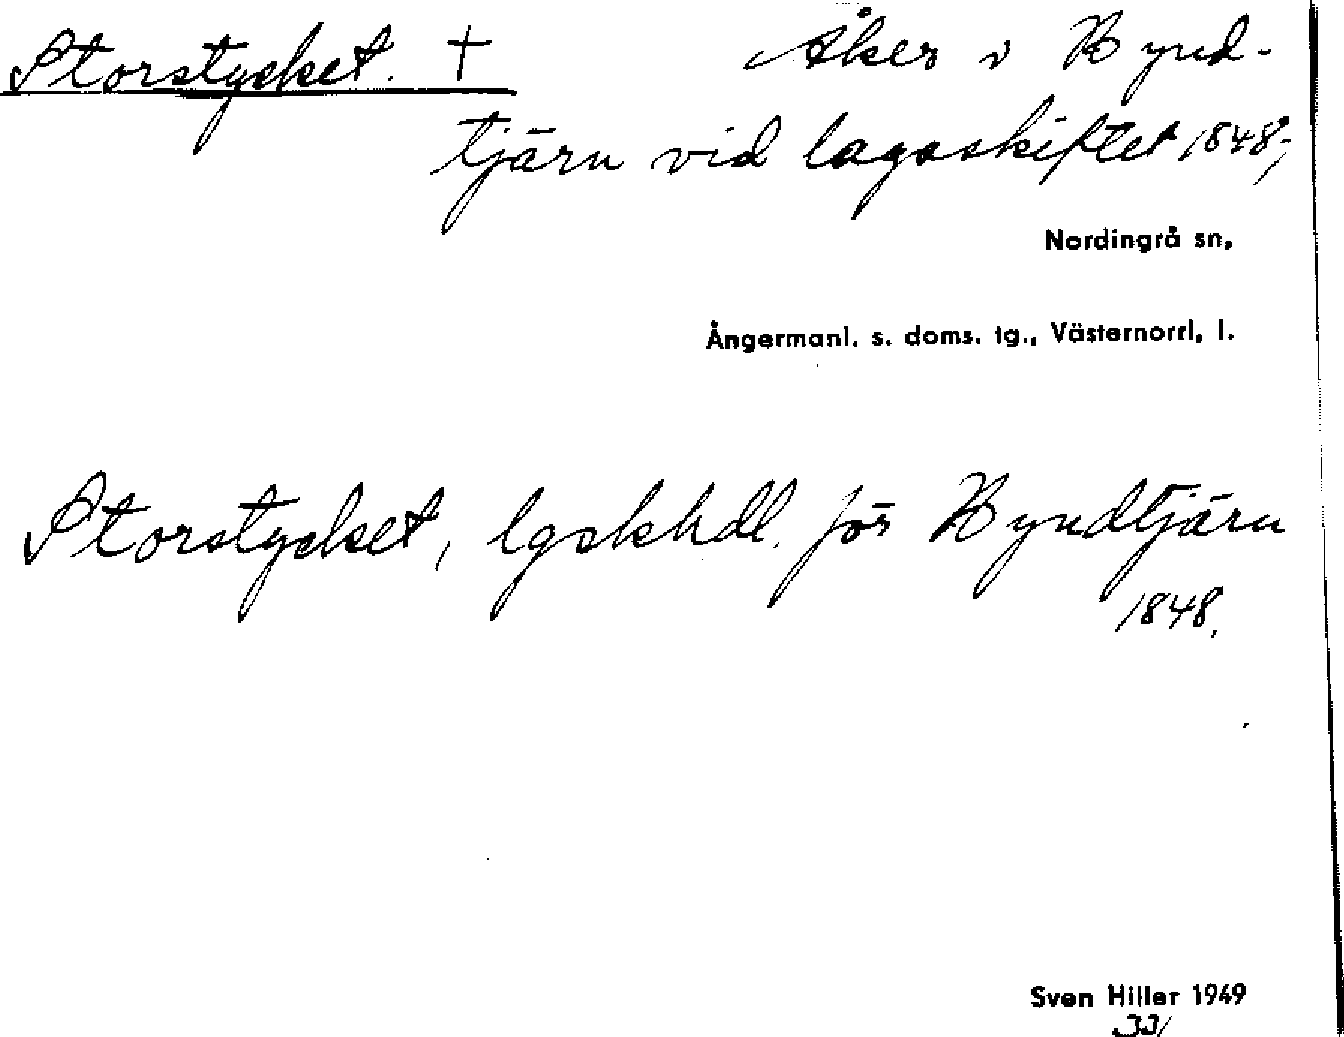 Storstycket. † Åker v Hynd-
tjärn vid lagaskiftet 1848;
Nordingrå sn,
Ångermanl. s. doms. tg., Västernorrl. l.
Storstycket, lgskhdl. för Hyndtjärn
1848.
Sven Hiller 1949